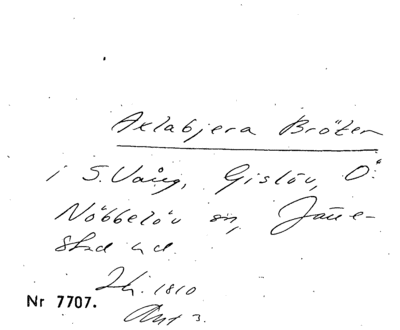 Axlabjera Bröten
i S. Vång, Gislöv, Ö.
Nöbbelöv sn, Järre-
stad hd.
Lh. 1810
Akt 3.
Nr 7707.